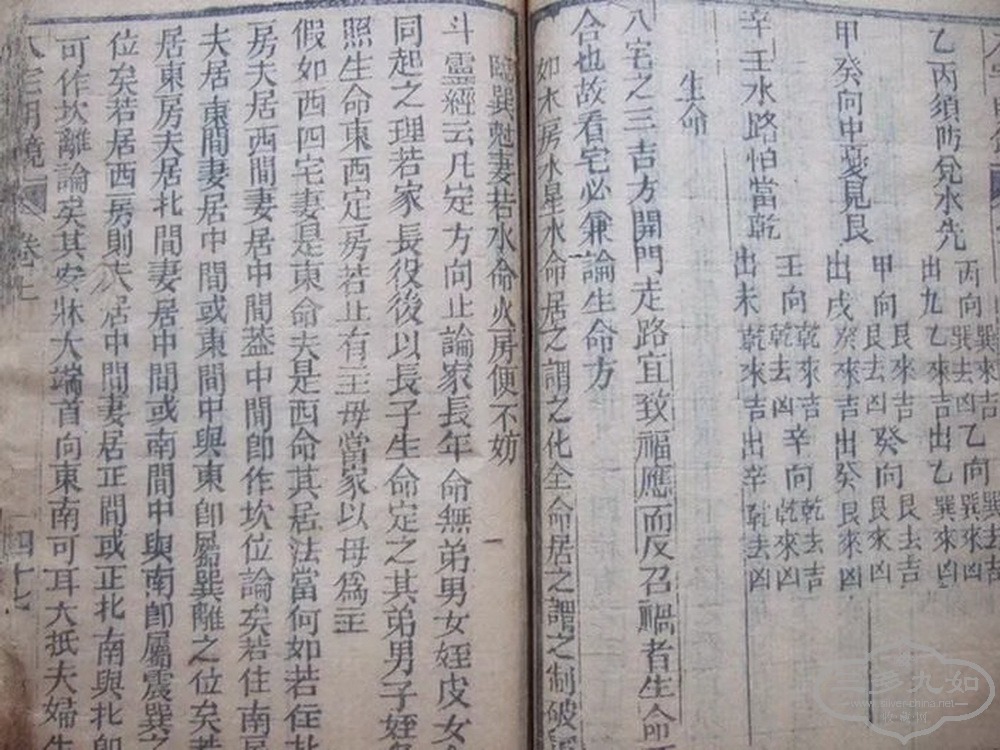 乙丙須防兌水先
丙向
巽來吉
巽去凶
乙向
巽去吉
巽來凶
出九乙來吉出乙
甲癸向中憂見艮
甲向
艮來吉
艮去凶
癸向
艮去吉
艮來凶
出戌癸來吉出癸
辛壬水路怕當乾
壬向
乾來吉
乾去凶
辛向
乾去吉
乾來凶
出未
出辛
生命
八宅之三吉方開門走路宜致福應而反召禍者生命不
合也故看宅必兼論生命方
如木房水星水命居之謂之化全命居之謂之制破
臨巽魁妻若水命火房便不妨
斗靈經云凡定方向止論家長年命無弟男女姪皮女
同起之理若家長役後以長子生命定之其弟男子姪
照生命東西定房若止有主母當家以母為主
假如西四宅妻是東命夫是西命其居法當何如若住北
房夫居西間妻居中間蓋中間即作坎位論矣若住南
夫居東間妻居中間或東間中與東即屬巽離之位矣若
居東房夫居北間妻居中間或南間中與南即屬震巽之
位矣若居西房則夫居中間妻居正間或正北南與北即
可作坎離論矣其安牀大端首向東南可耳大抵夫婦生
八宅明鏡
卷上
四十七
三多九如
www.silver-china.net
收藏網